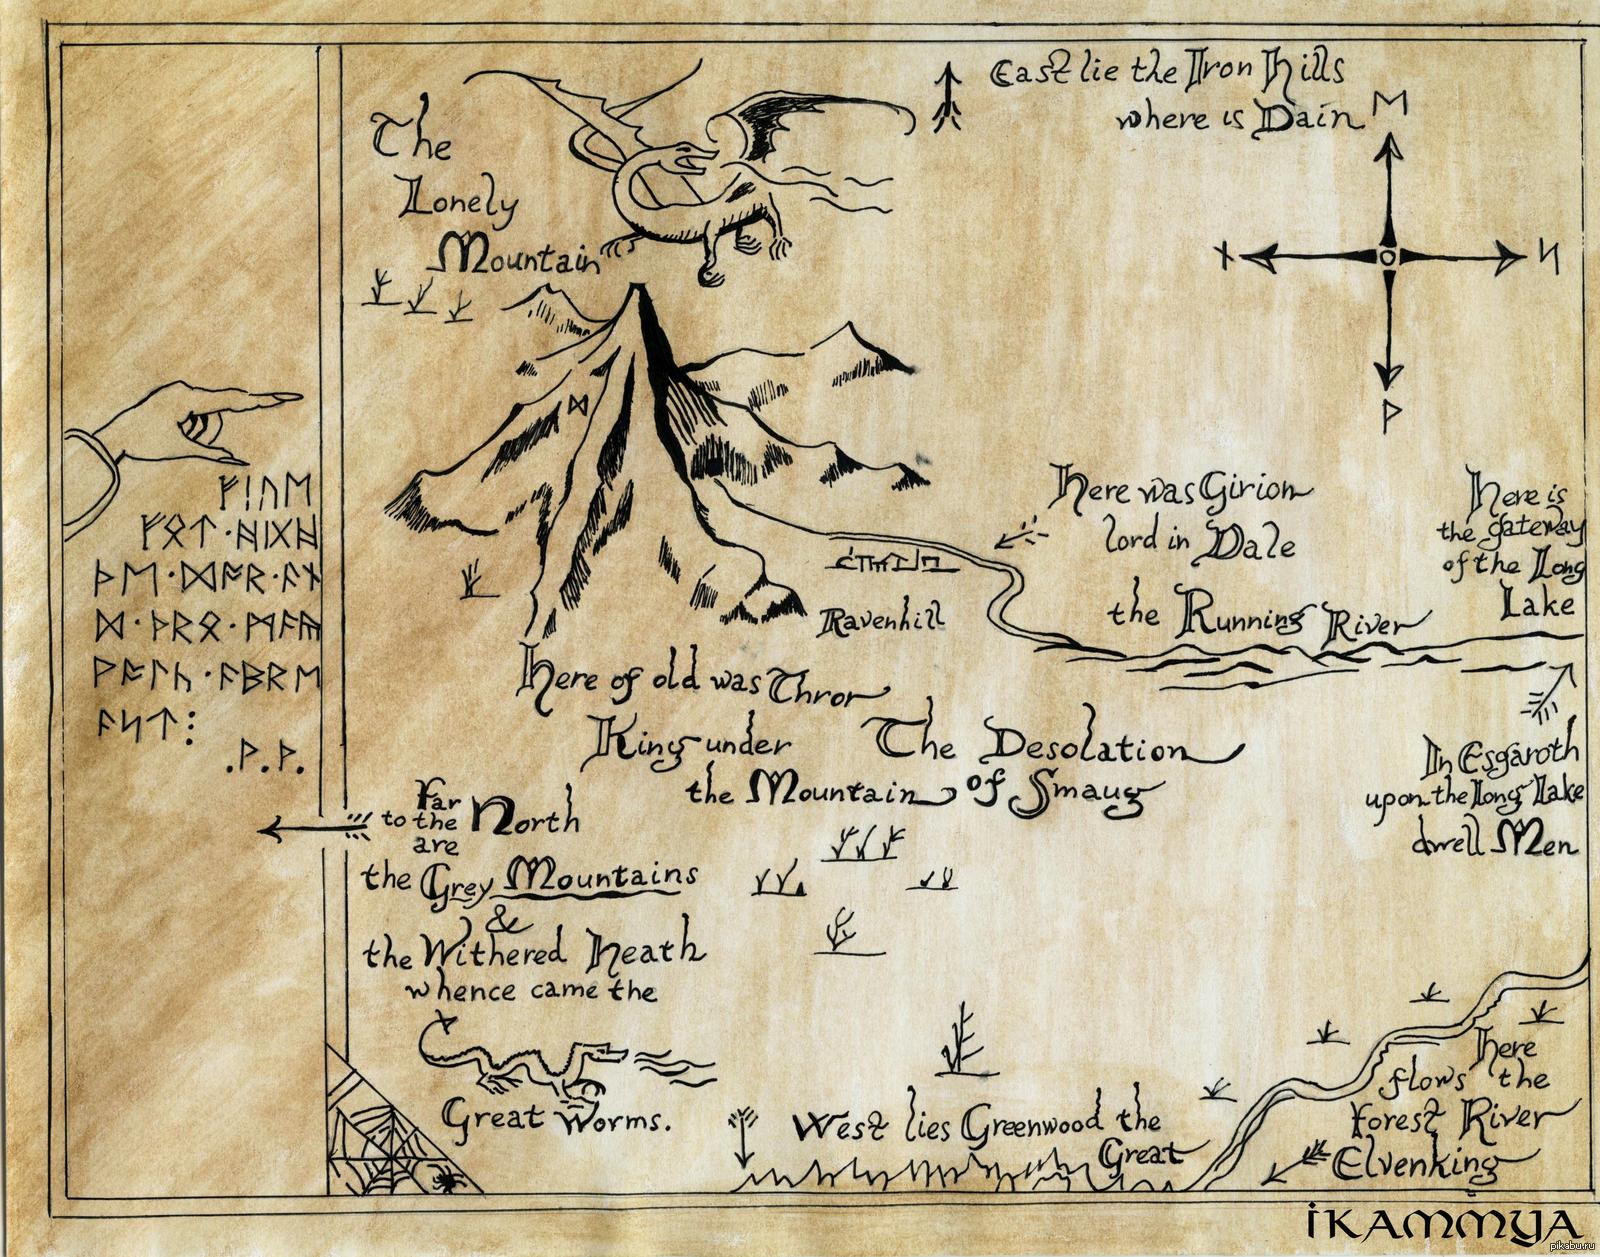 East lie the Iron Hills
where is Dain
The
Lonely
Mountain
ᛖ
ᚾ
ᛋ
ᚹ
ᚠᛁᚢᛖ
ᚠᚩᛏ᛫ᚻᛁᚷᚻ
ᚦᛖ᛫ᛞᚩᚱ᛫ᚪᚾ
ᛞ᛫ᚦᚱᛟ᛫ᛗᚪᚣ
ᚹᚪᛚᚳ᛫ᚪᛒᚱᛖ
ᚪᛋᛏ
.ᚦ.ᚦ.
Here was Girion
lord in Dale
Here is
the gateway
of the Long
Lake
Ravenhill
the Running River
Here of old was Thror
King under
the Mountain
The Desolation
of Smaug
In Esgaroth
upon the Long Lake
dwell Men
Far
to the North
are
the Grey Mountains
&
the Withered Heath
whence came the
Great Worms.
West lies Greenwood the
Great
Here
flows the
Forest River
Elvenking
iKAMMYA
pikabu.ru